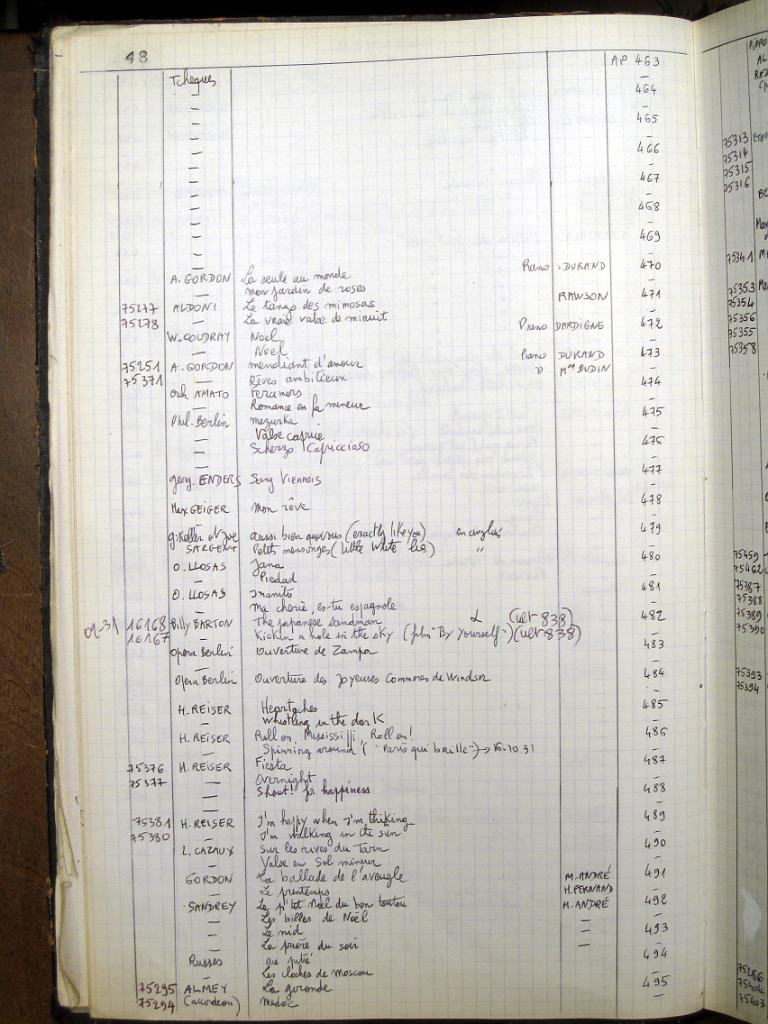 48
Tcheques AP 463
— —
— 464
— —
— 465
— —
— 466
— —
— 467
— —
— 468
— —
— 469
— —
A. GORDON La seule au monde Piano : DURAND 470
— mon jardin de roses —
75277 ALDONI Le tango des mimosas RAWSON 471
75278 — La vraie valse de minuit —
W. COUDRAY Noel Piano DARDIGNE 472
— Noel —
75251 A. GORDON mendiant d'amour Piano DURAND 473
75371 — Rêves ambitieux " Mme BUDIN —
Orch AMATO Feramors 474
— Romance en fa mineur —
Phil. Berlin mazurka 475
— Valse caprice —
— Scherzo Capriccioso 476
— —
Georg. ENDERS Sang Viennois 477
— —
Max GEIGER Mon rêve 478
— —
G. Keller et Joe aussi bien que vous (exactly like you) en anglais 479
SARGENT Petits mensonges (little white lies) " —
O. LLOSAS Jana 480
— Piedad —
O. LLOSAS 481
— Ma cherie, es-tu espagnole —
01-31 16168 Billy BARTON The japanese sandman (ult 838) 482
16167 — Kickin a hole in the sky (film "By Yourself") (ult 838) —
Opera Berlin Ouverture de Zampa 483
— —
Opera Berlin Ouverture des Joyeuses Commeres de Windsor 484
— —
H. REISER Heartaches 485
— Whistling in the dark —
H. REISER Roll on, Mississippi, Roll on! 486
— Spinning around ("Paris qui baille") → 15.10.31 —
75376 H. REISER Fiesta 487
75377 — Overnight —
— Shout! for happiness 488
— —
75381 H. REISER I'm happy when I'm hiking 489
75380 — I'm walking in the sun —
L. CAZAUX Sur les rives du Tarn 490
— Valse en Sol mineur —
GORDON La ballade de l'aveugle M. ANDRÉ 491
— Le printemps H. FERNAND —
SANDREY Le p'tit Noël du bon toutou M. ANDRÉ 492
— Les billes de Noël — —
— Le nid — 493
— La prière du soir — —
Russes 494
— Les cloches de Moscou —
75295 ALMEY La gironde 495
75294 (accordeon) Medoc —
75313
75314
75315
75316
75341
75353
75354
75356
75355
75358
75459
75462
75387
75388
75389
75390
75393
75394
75286
75403